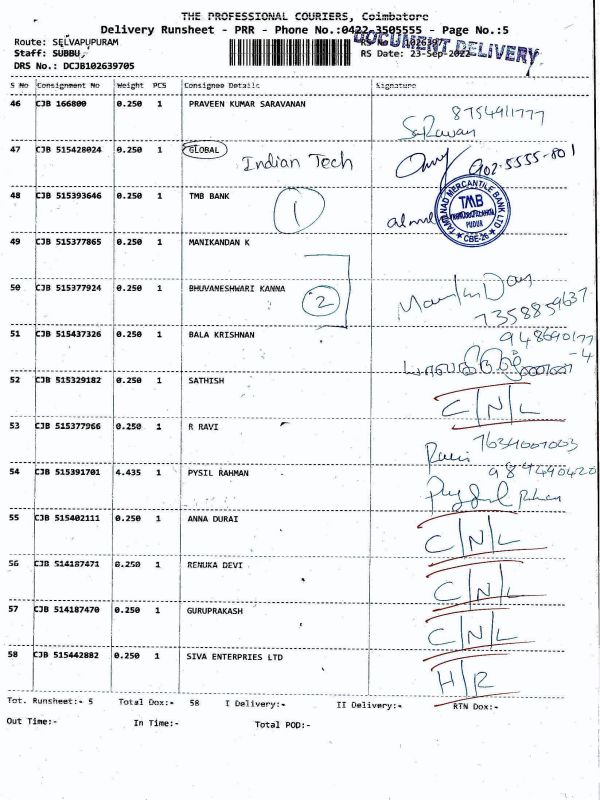 THE PROFESSIONAL COURIERS, Coimbatore
Delivery Runsheet - PRR - Phone No.:0422-3505555 - Page No.:5
DOCUMENT DELIVERY
Route: SELVAPUPURAM
Staff: SUBBU,
RS Date: 23-Sep-2022
DRS No.: DCJB102639705
S No Consignment No Weight PCS Consignee Details Signature
46 CJB 166800 0.250 1 PRAVEEN KUMAR SARAVANAN
8754911777
Saravan
47 CJB 515428024 0.250 1 GLOBAL Indian Tech
902-5555-801
48 CJB 515393646 0.250 1 TMB BANK 1
TAMILNAD MERCANTILE BANK LTD
TMB
CBE-26
49 CJB 515377865 0.250 1 MANIKANDAN K
50 CJB 515377924 0.250 1 BHUVANESHWARI KANNA 2
7358859637
51 CJB 515437326 0.250 1 BALA KRISHNAN
52 CJB 515329182 0.250 1 SATHISH
C/N/L
53 CJB 515377966 0.250 1 R RAVI
Ravi
54 CJB 515391701 4.435 1 PYSIL RAHMAN
55 CJB 515402111 0.250 1 ANNA DURAI
C/N/L
56 CJB 514187471 0.250 1 RENUKA DEVI
C/N/L
57 CJB 514187470 0.250 1 GURUPRAKASH
C/N/L
58 CJB 515442882 0.250 1 SIVA ENTERPRIES LTD
H/R
Tot. Runsheet:- 5 Total Dox:- 58 I Delivery:- II Delivery:- RTN Dox:-
Out Time:- In Time:- Total POD:-